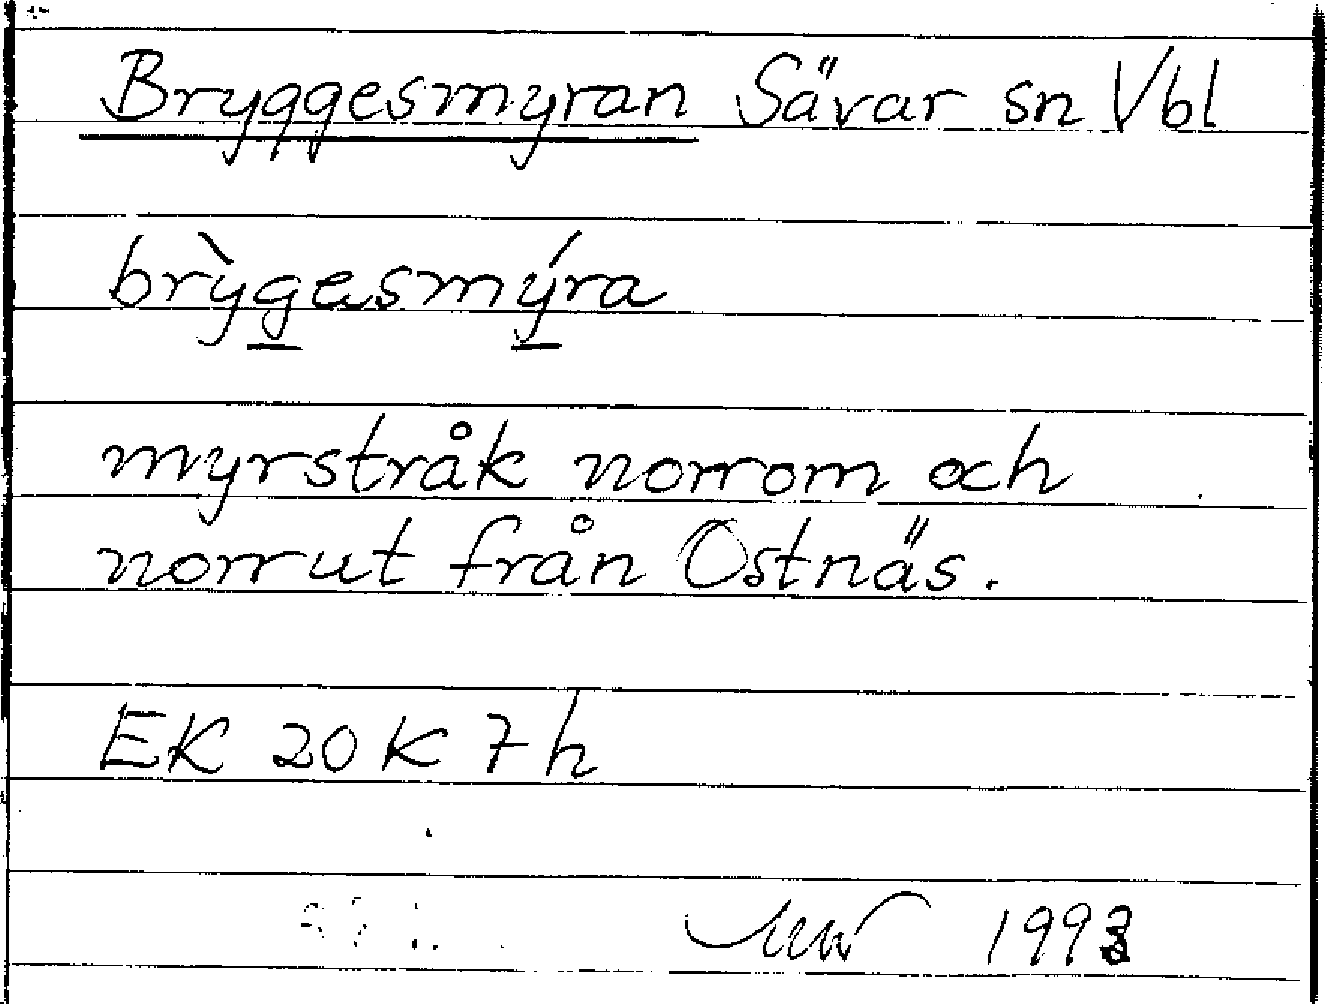 Bryggesmyran Sävar sn Vbl
brỳgesmýra
myrstråk norrom och
norrut från Ostnäs.
EK 20 K 7h
1993